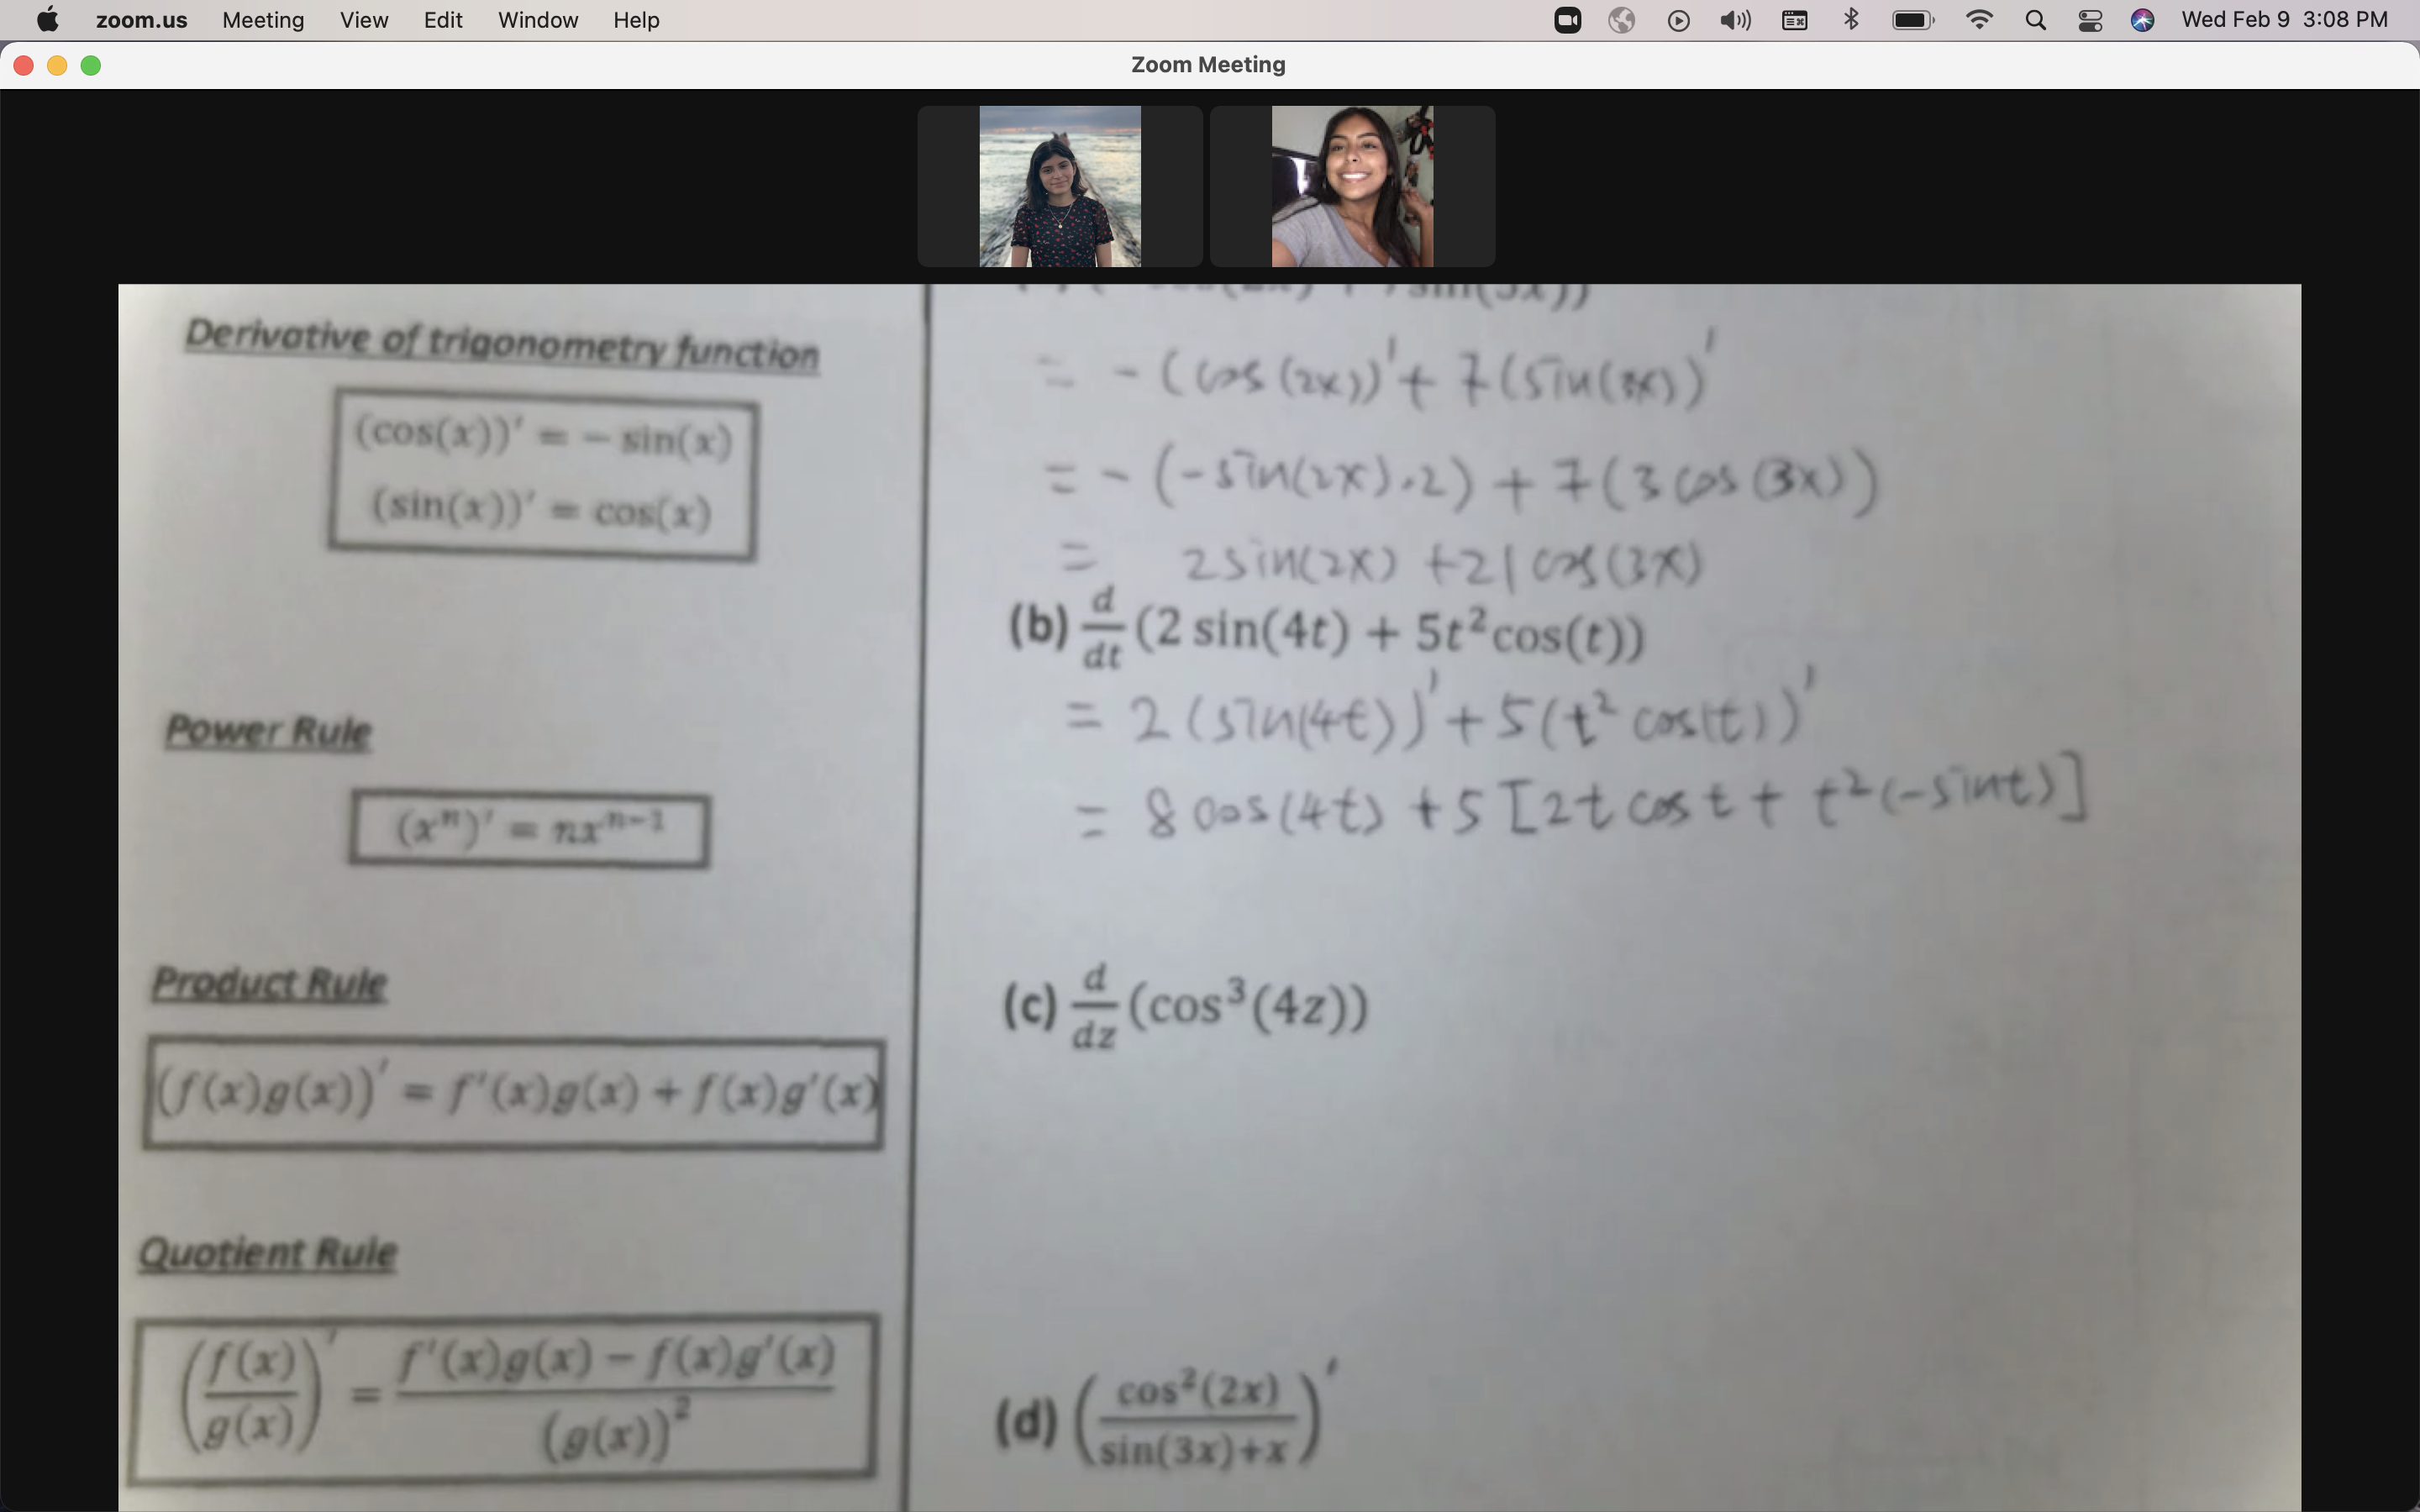 zoom.us Meeting View Edit Window Help Wed Feb 9 3:08 PM
Zoom Meeting
Derivative of trigonometry function
(cos(x))′ = − sin(x)
(sin(x))′ = cos(x)
Power Rule
(xⁿ)′ = nxⁿ⁻¹
Product Rule
(f(x)g(x))′ = f′(x)g(x) + f(x)g′(x)
Quotient Rule
(f(x)/g(x))′ = f′(x)g(x) − f(x)g′(x)/(g(x))²
sin(3x))
= - (cos (2x))′ + 7(sin(3x))′
= - (-sin(2x).2) + 7(3 cos (3x))
= 2sin(2x) +21 cos(3x)
(b) d/dt (2 sin(4t) + 5t²cos(t))
= 2 (sin(4t))′ + 5(t² cos(t))′
= 8 cos(4t) + 5 [2t cos t + t²(-sint)]
(c) d/dz (cos³(4z))
(d) (cos²(2x)/sin(3x)+x)′